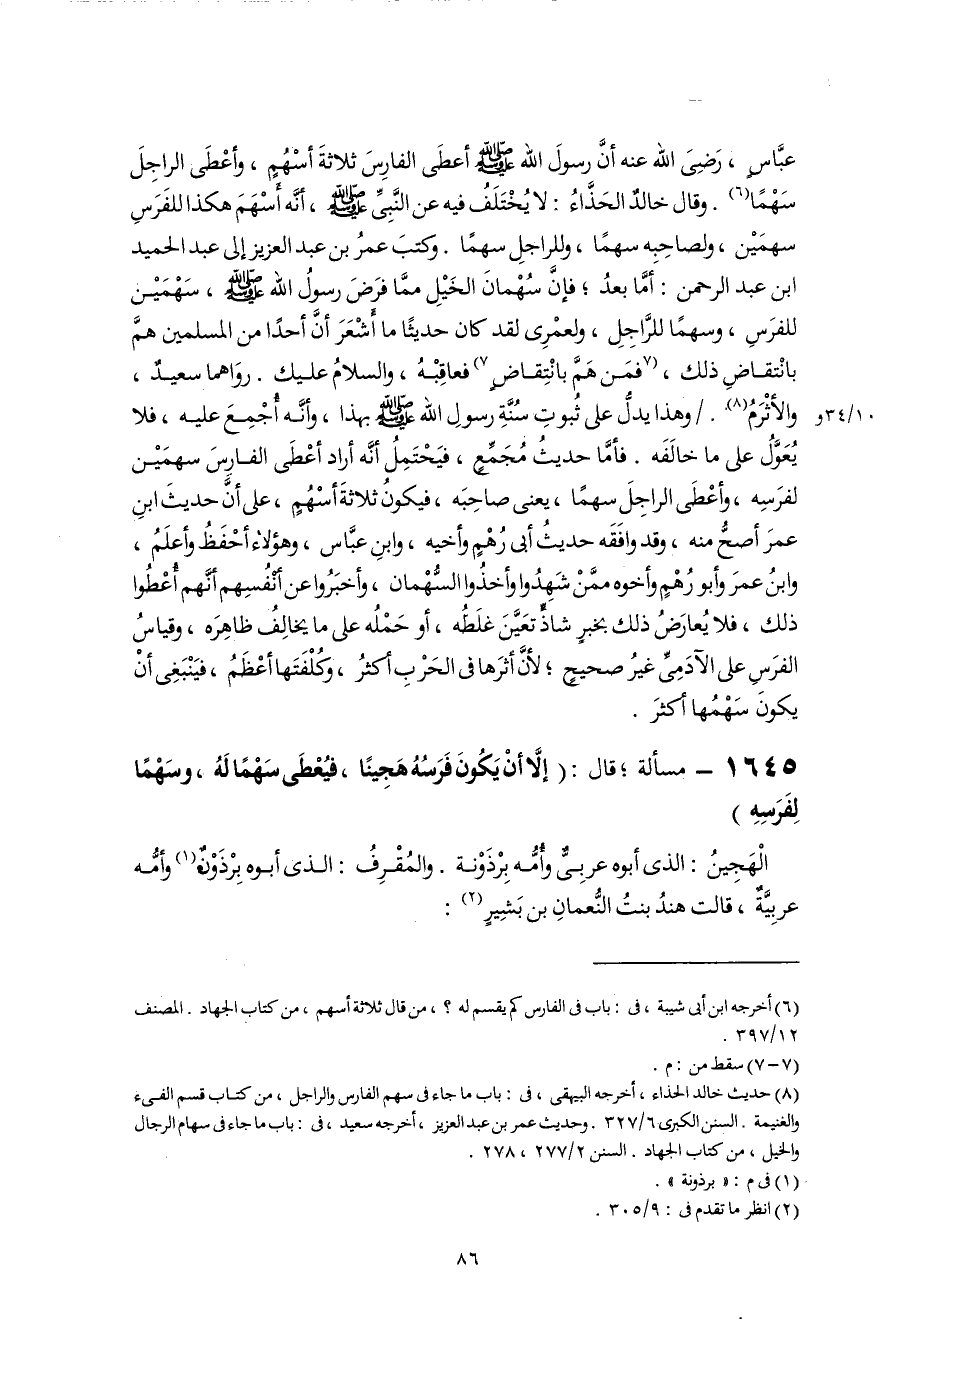 عبَّاسٍ ، رَضِىَ اللهُ عنه أنَّ رسولَ اللهِ ﷺ أعطَى الفارِسَ ثلاثةَ أسْهُمٍ ، وأعْطَى الراجِلَ
سَهْمًا(٦) . وقال خالدٌ الحَذَّاءُ : لا يُخْتَلَفُ فيه عن النَّبِىِّ ﷺ ، أنَّه أسْهَمَ هكذا للفَرَسِ
سهمَيْن ، ولصاحِبِه سهمًا ، وللراجلِ سهمًا . وكتبَ عمرُ بن عبد العزيز إلى عبد الحميد
ابن عبد الرحمن : أمَّا بعدُ ؛ فإنَّ سُهْمانَ الخَيْلِ ممَّا فرَضَ رسولُ اللهِ ﷺ ، سَهْمَيْـنِ
للفرَسِ ، وسهمًا للرَّاجِلِ ، ولعمْرِى لقد كان حديثًا ما أُشْعَرَ أنَّ أحدًا من المسلمين همَّ
بانْتقـاضِ ذلك ، (٧فمَـن هَمَّ بانْتِقـاضٍ٧) فعاقِبْـهُ ، والسلامُ عليـك . روَاهما سعيـدٌ ،
والأثْرَمُ(٨) . / وهذا يدلُّ على ثُبوتِ سُنَّةِ رسولِ اللهِ ﷺ بهذا ، وأنَّـه أُجْمِـعَ عليـه ، فلا ١٠/٣٤و
يُعَوَّلُ على ما خالَفَه . فأمَّا حديثُ مُجَمِّعٍ ، فيَحْتَمِلُ أنَّه أراد أعْطَى الفـارِسَ سهمَيْـن
لفرَسِه ، وأعْطَى الراجلَ سهمًا ، يعنى صاحِبَه ، فيكونُ ثلاثةَ أسْهُمٍ ، على أنَّ حديثَ ابنِ
عمرَ أصحُّ منه ، وقد وافَقَه حديثُ أبى رُهْمٍ وأخيه ، وابنِ عبَّاس ، وهؤلاء أحْفَظُ وأعلَمُ ،
وابنُ عمرَ وأبو رُهْمٍ وأخوه ممَّنْ شَهِدُوا وأخذُوا السُّهْمان ، وأخبَرُوا عن أنْفُسِهم أنَّهم أُعْطُوا
ذلك ، فلا يُعارَضُ ذلك بخبرٍ شاذٍّ تعَيَّنَ غلَطُه ، أو حَمْلُه على ما يخالِفُ ظاهِرَه ، وقياسُ
الفرَسِ على الآدَمِىِّ غيرُ صحيحٍ ؛ لأنَّ أثرَها فى الحَرْبِ أكثرُ ، وكُلْفَتَها أعْظَمُ ، فيَنْبَغِى أنْ
يكونَ سَهْمُها أكثرَ .
١٦٤٥ – مسألة ؛ قال : ( إلَّا أنْ يَكُونَ فَرَسُهُ هَجِينًا ، فيُعْطَى سَهْمًا لَهُ ، وسَهْمًا
لِفَرَسِهِ )
الْهَجِينُ : الذى أبوه عربِىٌّ وأُمُّـه بِرْذَوْنـة . والمُقْـرِفُ : الـذى أبـوه بِرْذَوْنٌ(١) وأُمُّـه
عربِيَّةٌ ، قالت هندُ بنتُ النُّعمانِ بن بَشِيرٍ(٢) :
(٦) أخرجه ابن أبى شيبة ، فى : باب فى الفارس كم يقسم له ؟ ، من قال ثلاثة أسهم ، من كتاب الجهاد . المصنف
١٢/٣٩٧ .
(٧-٧) سقط من : م .
(٨) حديث خالد الحذاء ، أخرجه البيهقى ، فى : باب ما جاء فى سهم الفارس والراجل ، من كتـاب قسم الفىء
والغنيمة . السنن الكبرى ٦/٣٢٧ . وحديث عمر بن عبد العزيز ، أخرجه سعيد ، فى : باب ما جاء فى سهام الرجال
والخيل ، من كتاب الجهاد . السنن ٢/٢٧٧ ، ٢٧٨ .
(١) فى م : « برذونة » .
(٢) انظر ما تقدم فى : ٩/٣٠٥ .
٨٦